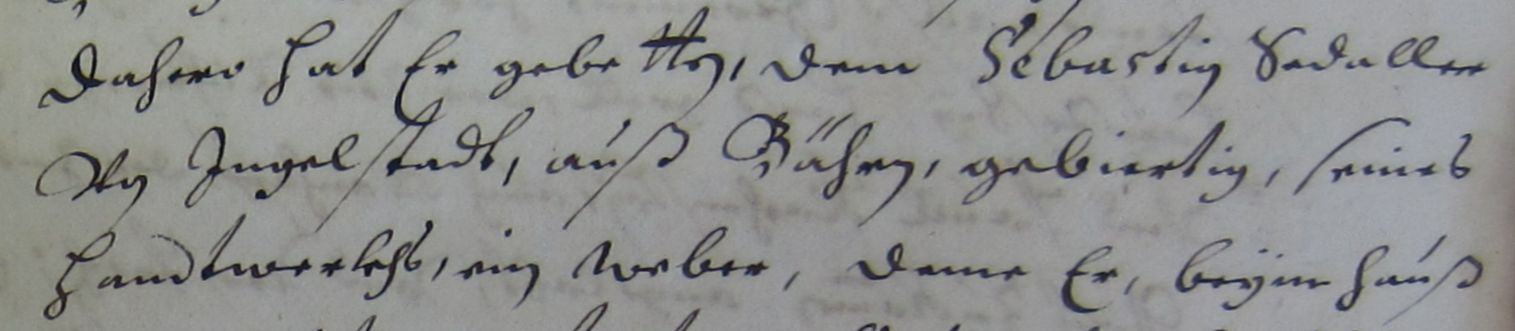 Dahero hat Er gebetten, dem Sebastin Sadaller
Von Ingelstadt, auß Bährn, gebiertig, seines
Handtwerkhs, ein Weber, deme Er, beÿm hauß